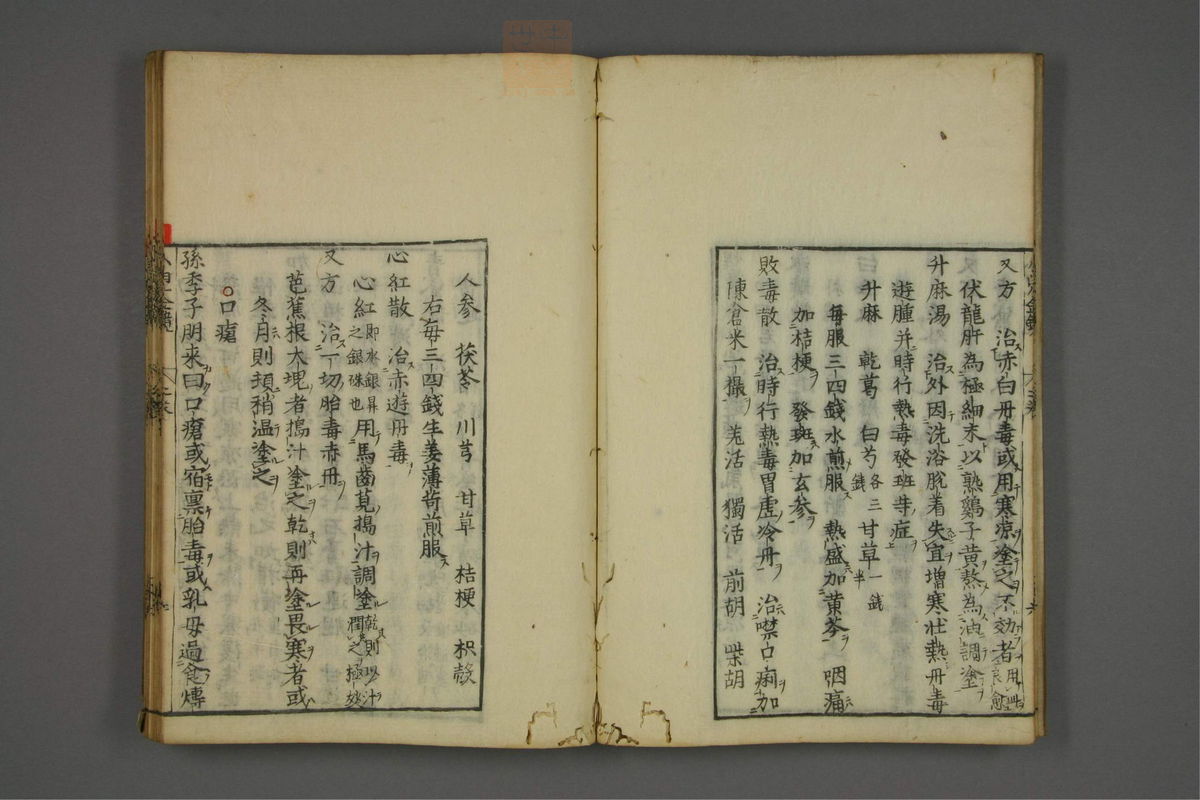 又方　治赤白丹毒或用寒凉塗之不効者用此良愈
伏龍肝為極細末以熟鷄子黄熬為油調塗
升麻湯　治外因洗浴脫着失宜増寒壮熱丹毒
遊腫并時行熱毒發班等症
升麻　乾葛　白芍各三錢　甘草一錢半
毎服三四錢水煎服　熱盛加黄芩　咽痛
加桔梗　發斑加玄参
敗毒散　治時行熱毒胃虚冷丹　治噤口痢加
陳倉米一撮　羌活　獨活　前胡　柴胡
人参　茯苓　川芎　甘草　桔梗　枳殼
右毎三四錢生姜薄荷煎服
心紅散　治赤遊丹毒
心紅即水銀昇之銀硃也用馬齒莧搗汁調塗乾則以汁潤之極效
又方　治一切胎毒赤丹
芭蕉根大塊者搗汁塗之乾則再塗畏寒者或
冬月則頓稍温塗之
○口瘡
孫季子朋来曰口瘡或宿禀胎毒或乳母過食煿